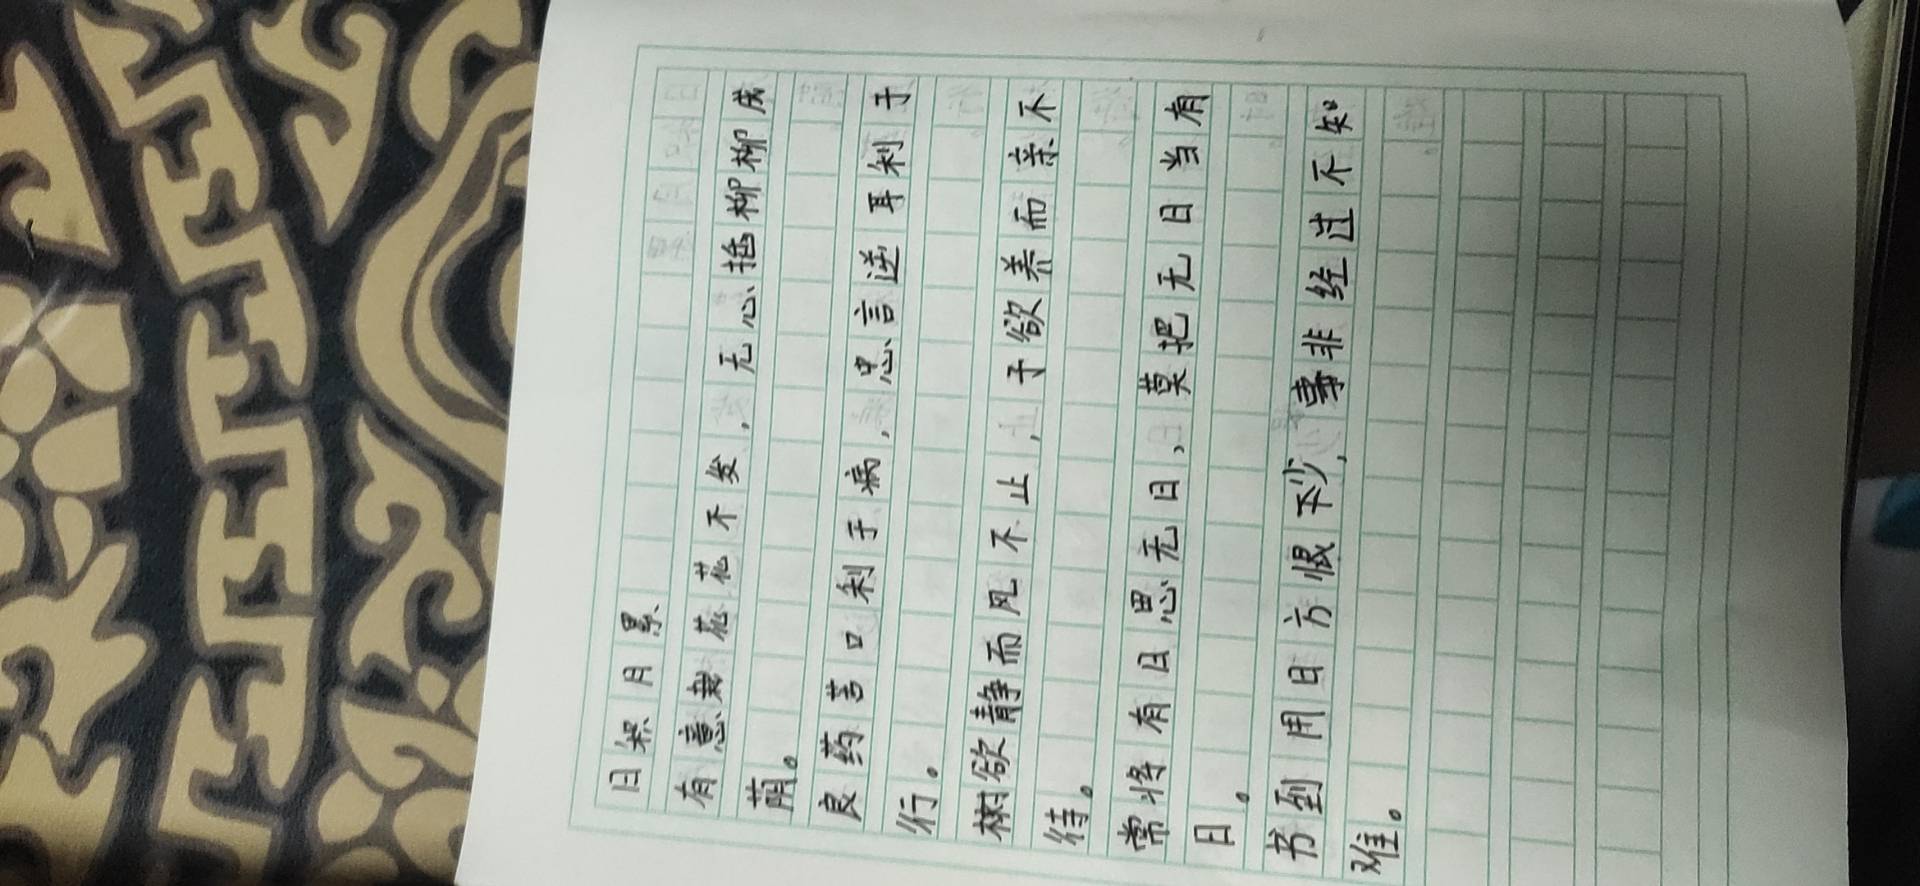 日积月累
有意栽花花不发，无心插柳柳成
荫。
良药苦口利于病，忠言逆耳利于
行。
树欲静而风不止，子欲养而亲不
待。
常将有日思无日，莫把无日当有
日。
书到用日方恨不少，事非经过不知
难。